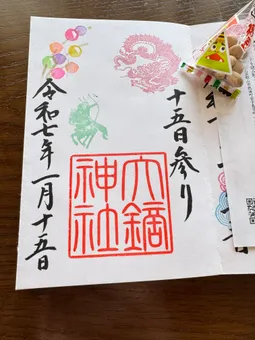 十五日参り
大鏑
神社
令和七年一月十五日